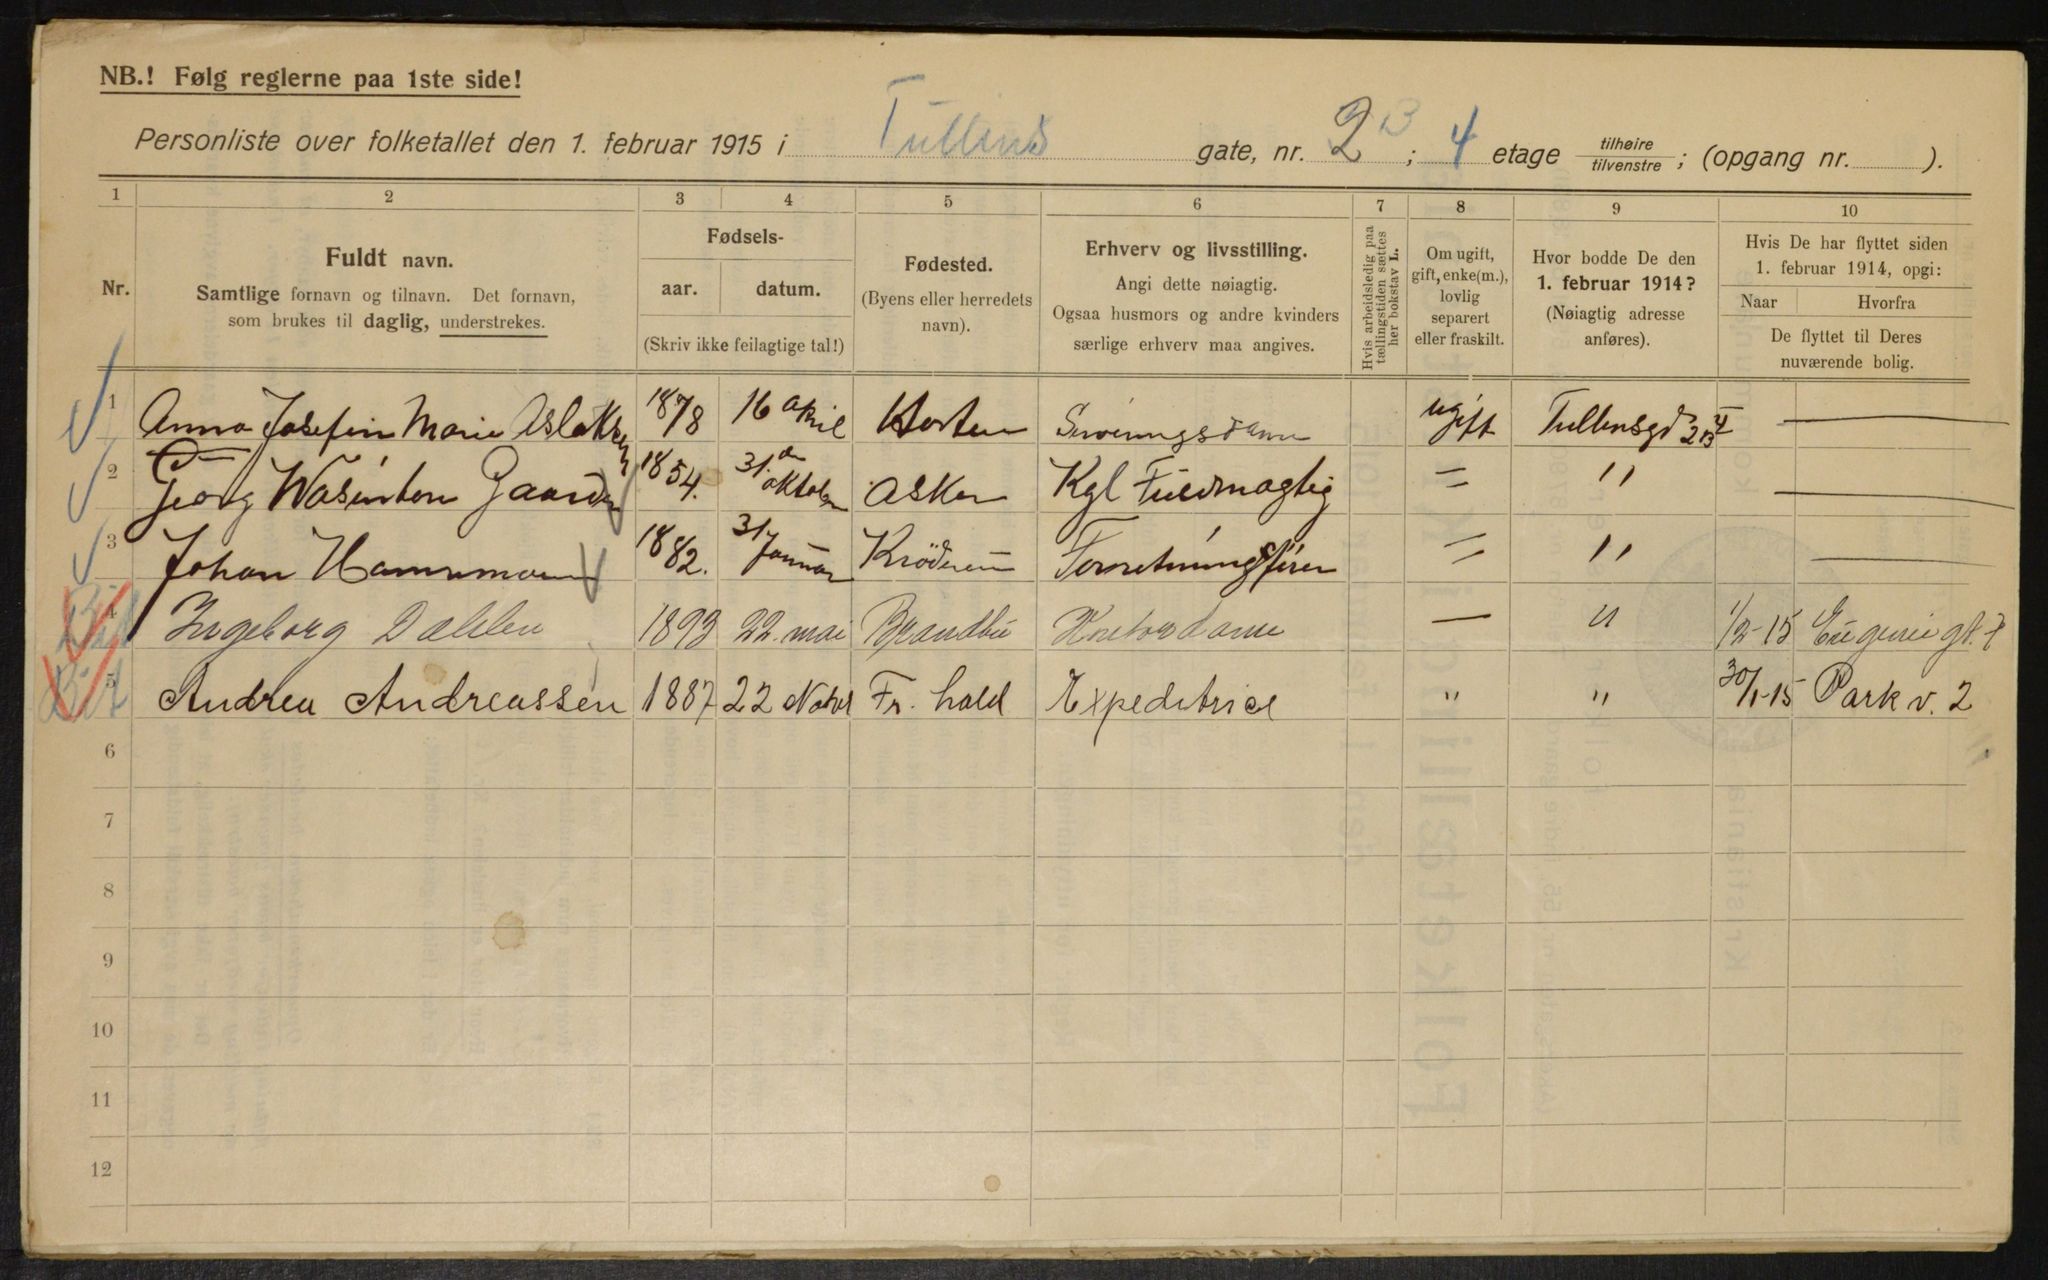 NB.! Følg reglerne paa 1ste side!
Personliste over folketallet den 1. februar 1915 i Tullins gate, nr. 2 B; 4 etage tilhøire tilvenstre; (opgang nr. ).
1 2 3 4 5 6 7 8 9 10
Nr.
Fuldt navn.
Samtlige fornavn og tilnavn. Det fornavn,
som brukes til daglig, understrekes.
Fødsels-
aar. datum.
(Skriv ikke feilagtige tal!)
Fødested.
(Byens eller herredets
navn).
Erhverv og livsstilling.
Angi dette nøiagtig.
Ogsaa husmors og andre kvinders
særlige erhverv maa angives.
Hvis arbeidsledig paa
tællingstiden sættes
her bokstav L.
Om ugift,
gift, enke(m.),
lovlig
separert
eller fraskilt.
Hvor bodde De den
1. februar 1914?
(Nøiagtig adresse
anføres).
Hvis De har flyttet siden
1. februar 1914, opgi:
Naar Hvorfra
De flyttet til Deres
nuværende bolig.
1 Anna Josefin Marie Aslaksen 1878 16 April Horten ugift Tullinsgd 2B 4
2 Georg Wasinton Gaarder 1854. 31. oktober Asker Kgl Fuldmagtig = "
3 Johan Hammer 1882. 31 Januar Krøderen Forretningsfører = "
4 Ingeborg Dahlen 1893 22. mai Brandbu Kontordame — " 1/2-15 Eugenie gt. 7
5 Andrea Andreassen 1887 22 Novbr Fr. hald Expeditrice " " 30/1-15 Park v. 2
6
7
8
9
10
11
12